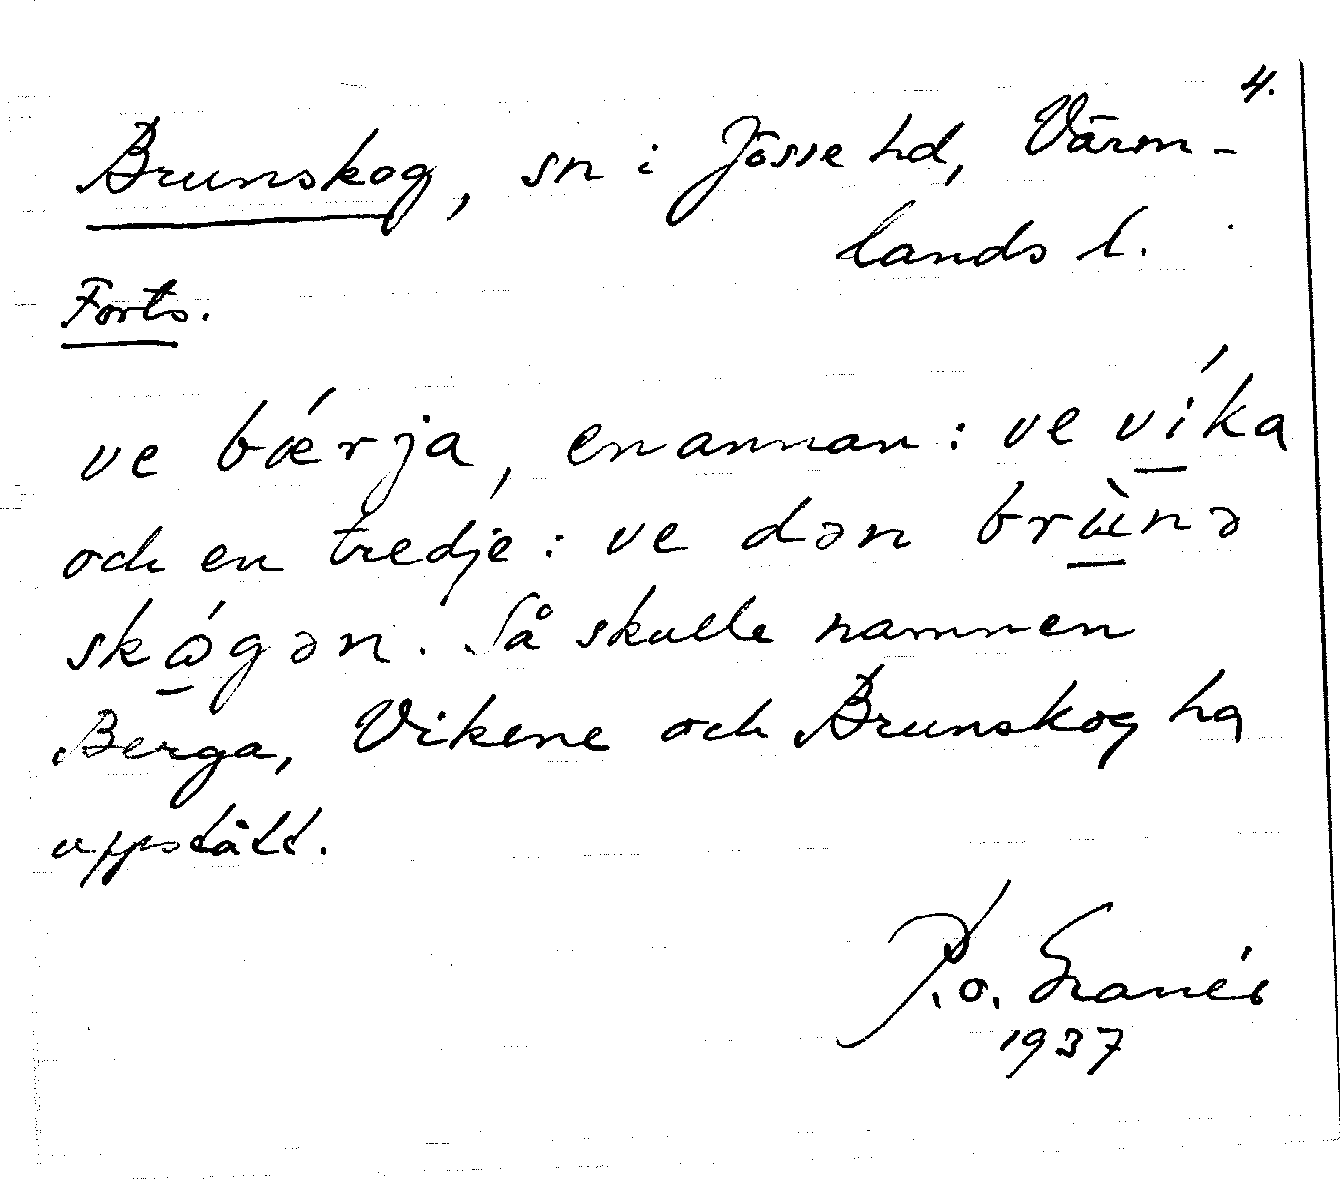 4.
Brunskog, sn i Jösse hd, Värm-
lands l.
Forts.
ve bǽrja, en annan: ve víka
och en tredje: ve dən brùnə
skógən. Så skulle namnen
Berga, Vikene och Brunskog ha
uppstått.
P.o.
1937